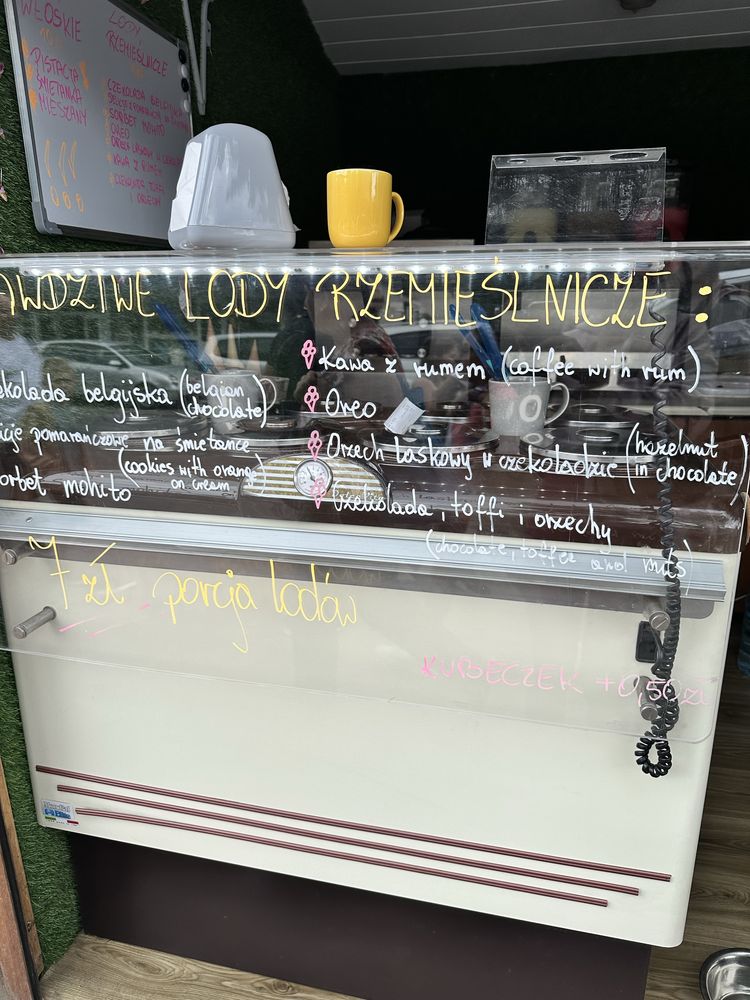 WŁOSKIE
PISTACJA
ŚMIETANKA
MIESZANY
LODY
RZEMIEŚLNICZE
CZEKOLADA BELGIJSKA
SORBET MOHITO
OREO
ORZECH LASKOWY W CZEKOLADZIE
KAWA Z RUMEM
CZEKOLADA TOFFI
I ORZECHY
AWDZIWE LODY RZEMIEŚLNICZE :
Kawa z rumem (coffee with rum)
okolada belgijska (belgian
chocolate)
Oreo
cje pomarańczowe na śmietance
(cookies with orange
on cream)
Orzech laskowy w czekoladzie (hazelnut
in chocolate)
orbet mohito
Czekolada, toffi i orzechy
(chocolate, toffee and nuts)
7 zł porcja lodów
KUBECZEK +0,50zł